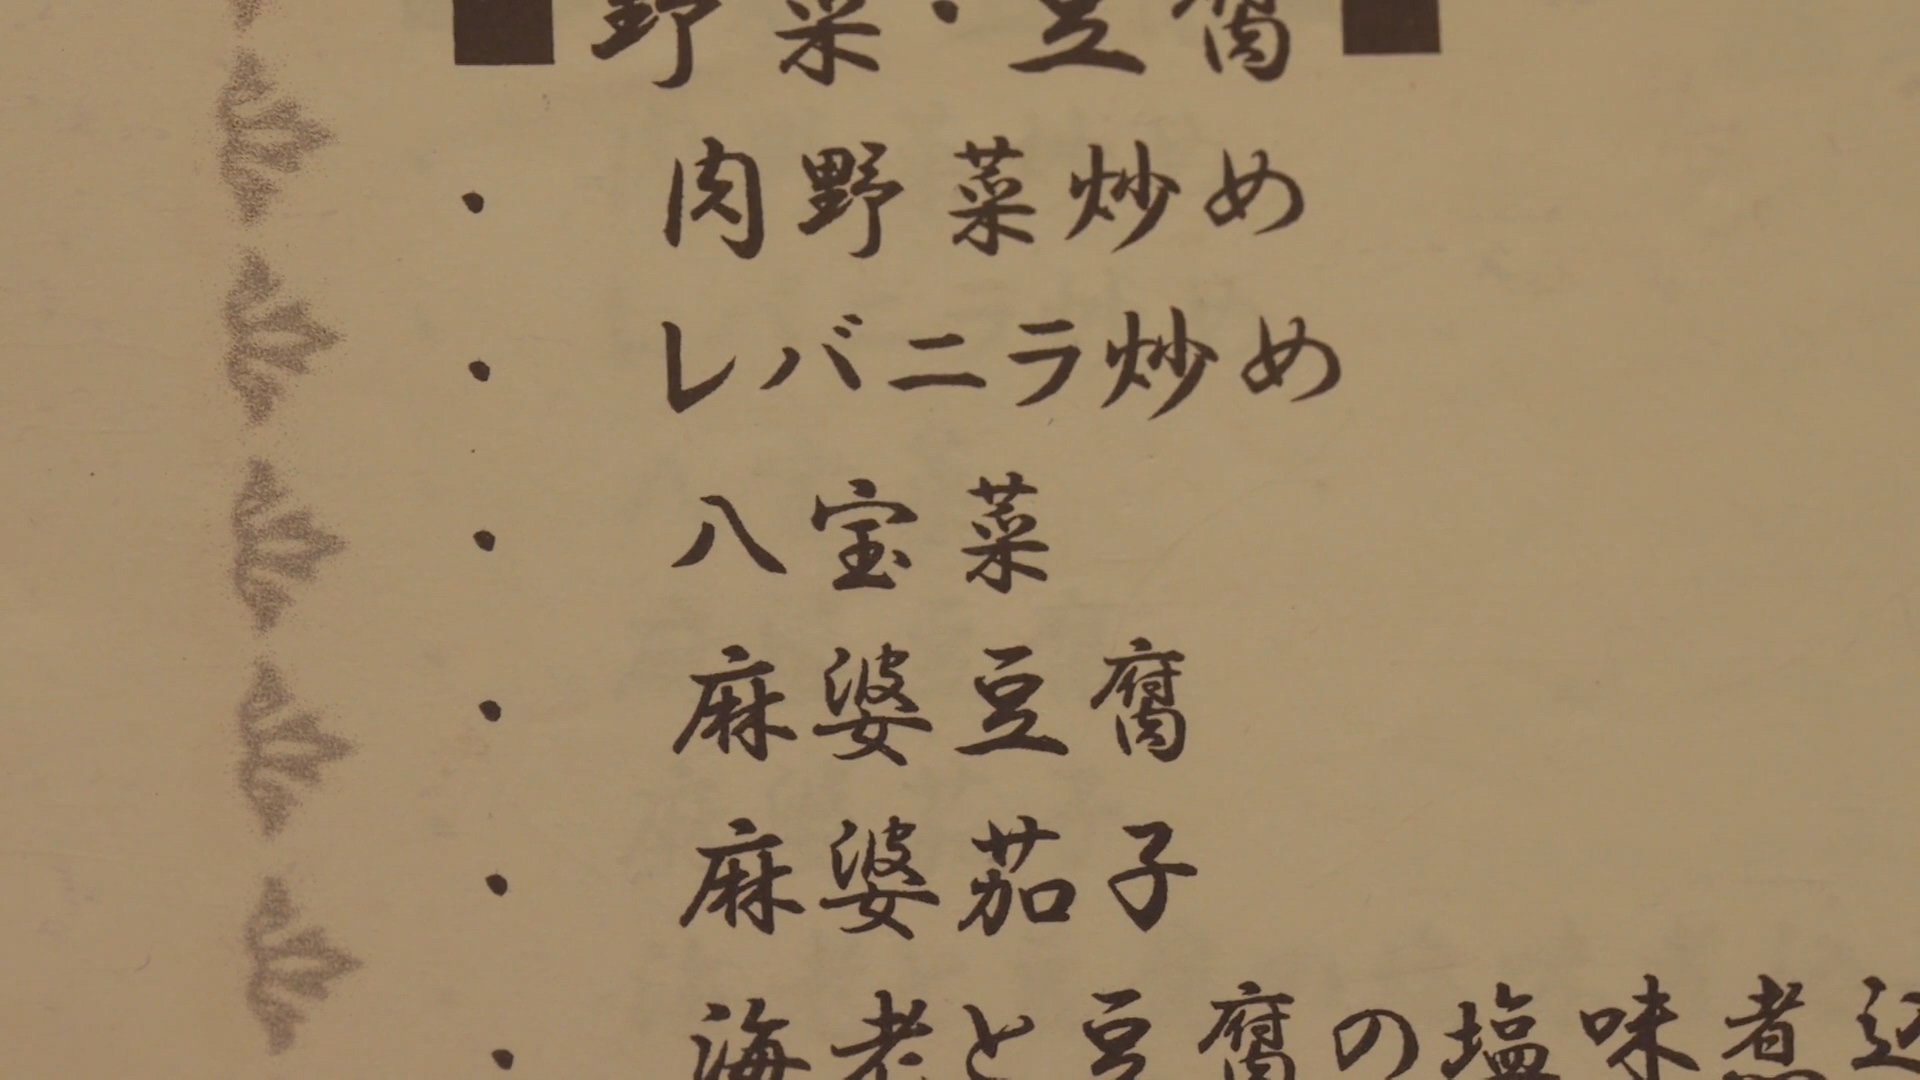 ■野菜・豆腐■
・ 肉野菜炒め
・ レバニラ炒め
・ 八宝菜
・ 麻婆豆腐
・ 麻婆茄子
・ 海老と豆腐の塩味煮込